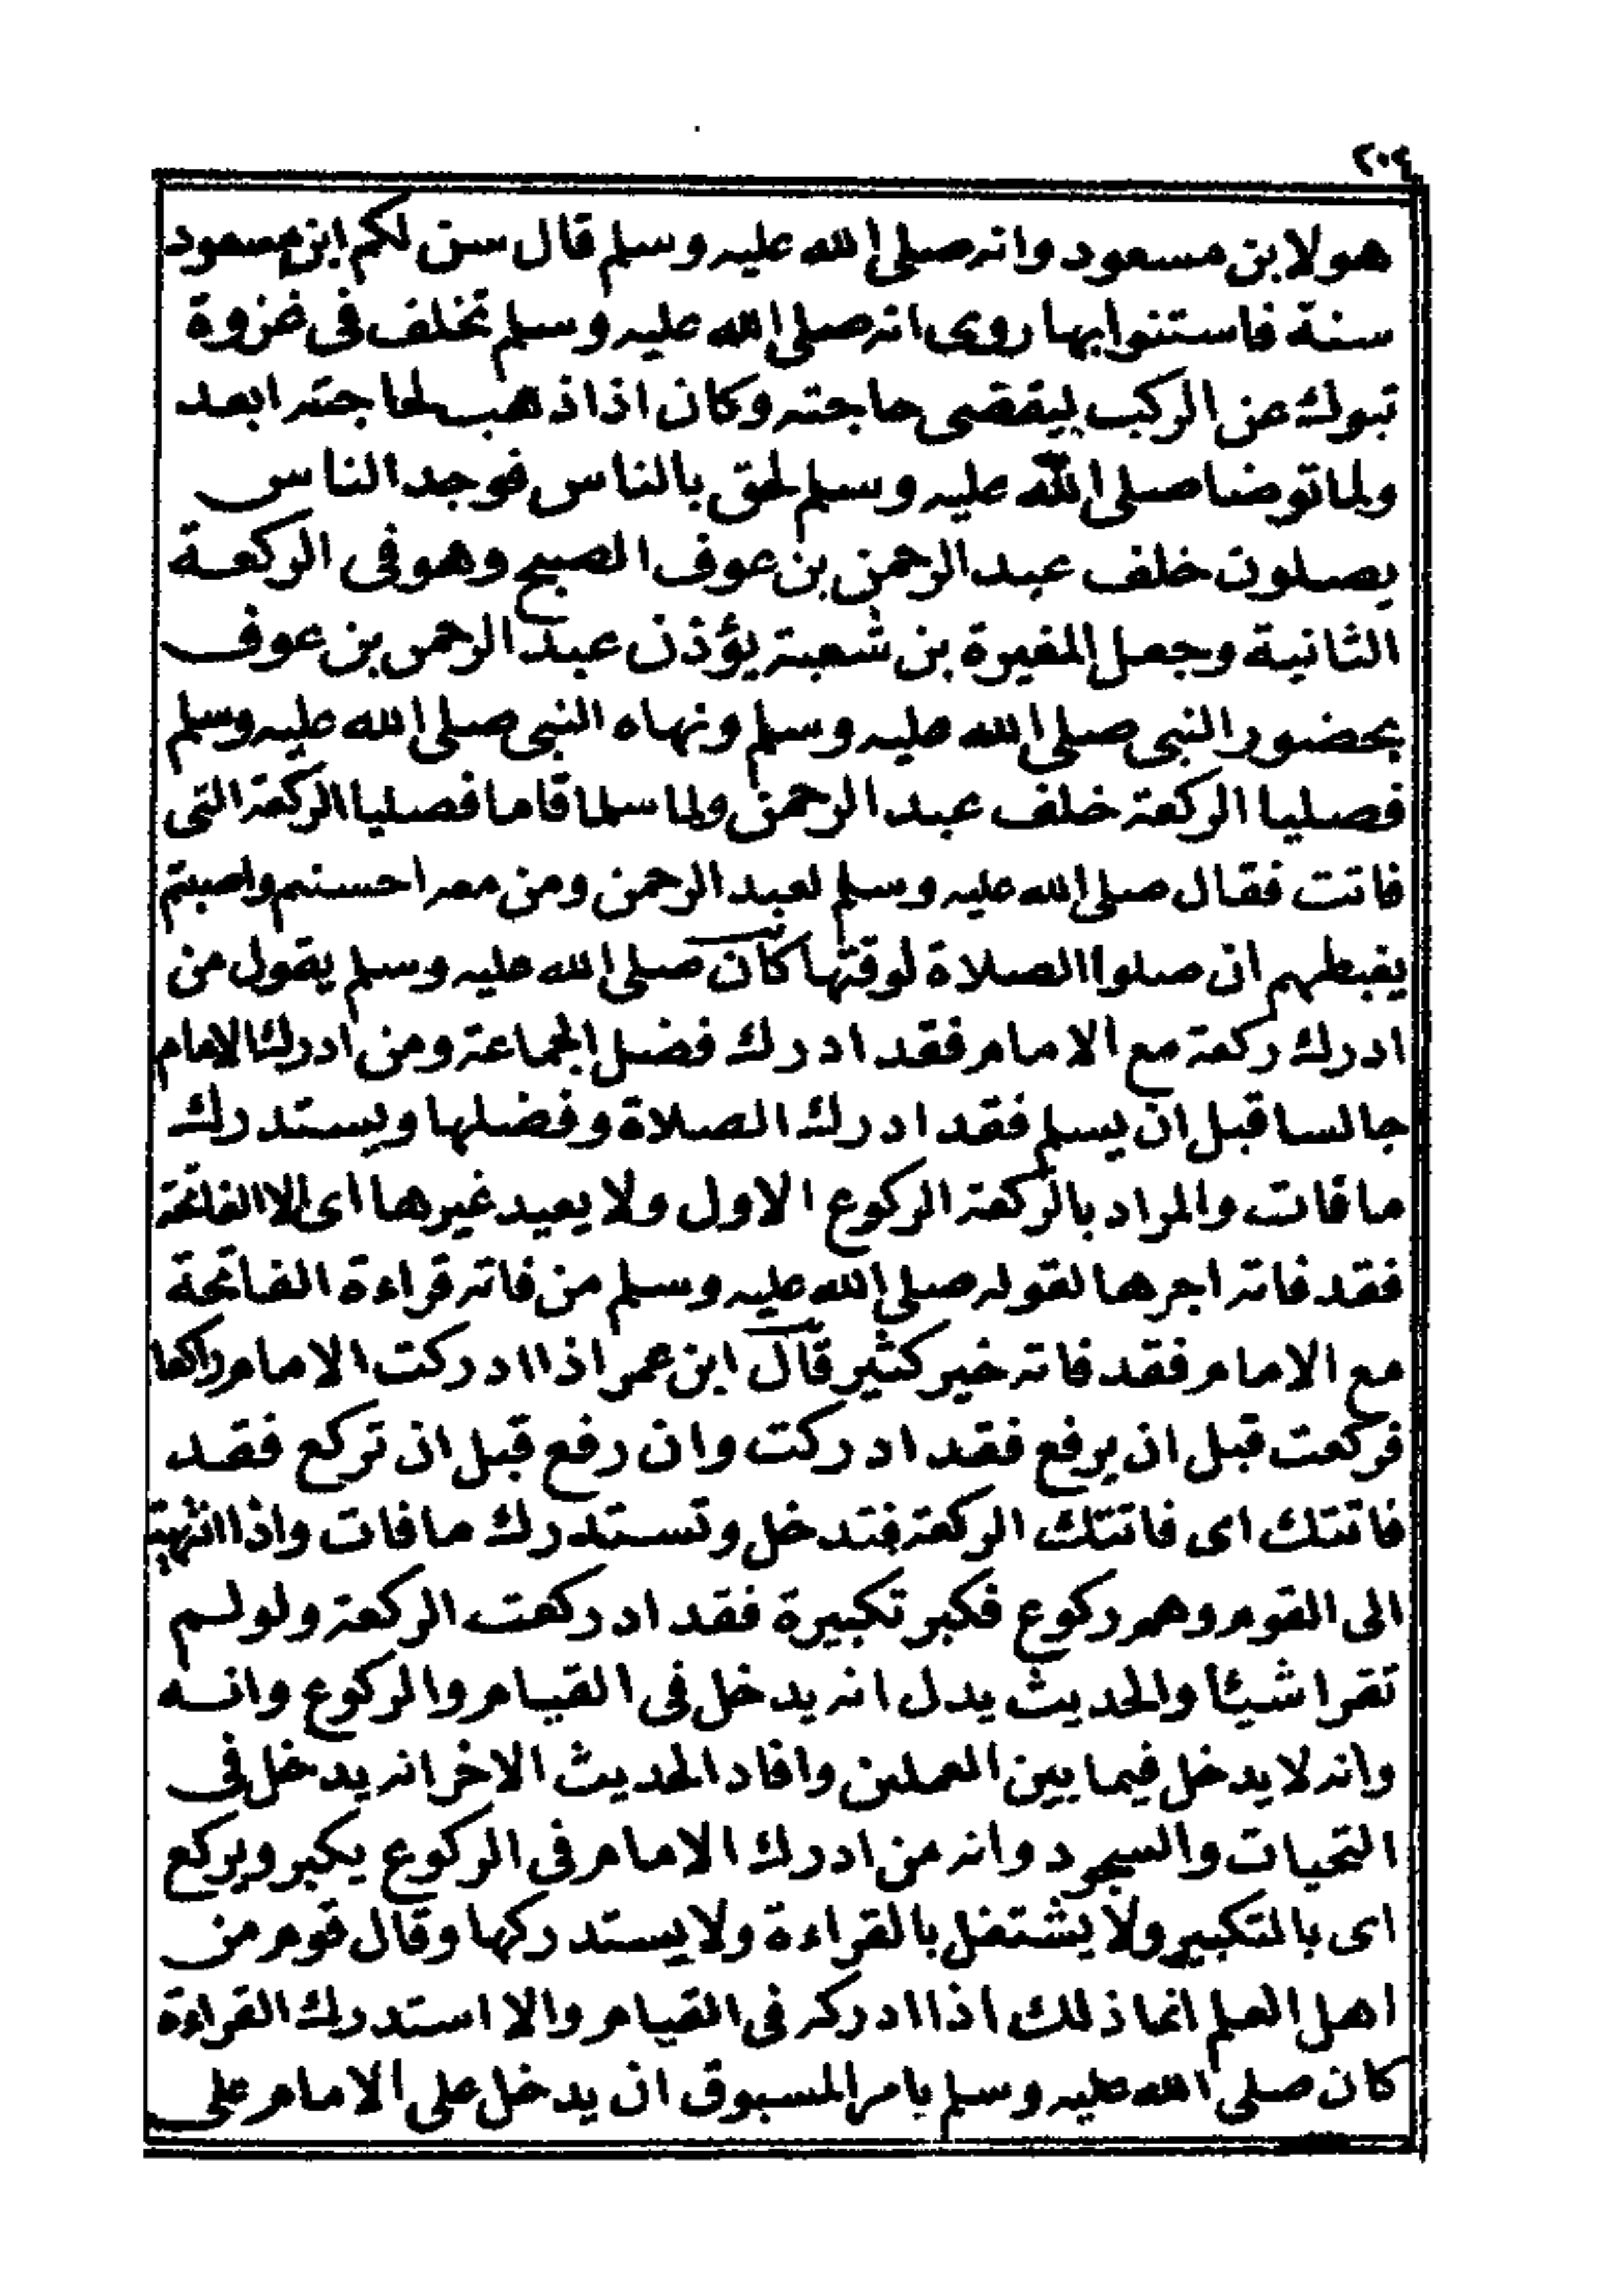 ٢٠٤
هو لابن مسعود وانه صلى الله عليه وسلم قال سن لكم ابن مسعود
سنة فاستنوا بها روى انه صلى الله عليه وسلم تخلف فى غزوة
تبوك عن الركب ليقضى حاجته وكان اذا ذهب لحاجته ابعد
ولما توضا صلى الله عليه وسلم لحق بالناس فوجد الناس
يصلون خلف عبد الرحمن بن عوف الصبح وهو فى الركعة
الثانية وجعل المغيرة بن شعبة يؤذن عبد الرحمن بن عوف
بحضور النبى صلى الله عليه وسلم ونهاه النبى صلى الله عليه وسلم
فصليا الركعة خلف عبد الرحمن ولما سلما قاما فصليا الركعة التى
فاتت فقال صلى الله عليه وسلم لعبد الرحمن ومن معه احسنتم واصبتم
يغبطهم ان صلوا الصلاة لوقتها كان صلى الله عليه وسلم يقول من
ادرك ركعة مع الامام فقد ادرك فضل الجماعة ومن ادرك الامام
جالسا قبل ان يسلم فقد ادرك الصلاة وفضلها ويستدرك
ما فات والمراد بالركعة الركوع الاول ولا يعيد غيرها اى الا الفاتحة
فقد فاته اجرها لقوله صلى الله عليه وسلم من فاته قراءة الفاتحة
مع الامام فقد فاته خير كثير قال ابن عمر اذا ادركت الامام راكعا
فركعت قبل ان يرفع فقد ادركت وان رفع قبل ان تركع فقد
فاتتك اى فاتتك الركعة فتدخل وتستدرك ما فات واذا انتهيت
الى القوم وهم ركوع فكبر تكبيرة فقد ادركعت الركعة ولو لم
تقرا شيئا والحديث يدل انه يدخل فى القيام والركوع وانه
وانه لا يدخل فيما بين العملين وافاد الحديث الاخر انه يدخل فى
التحيات والسجود وانه من ادرك الامام فى الركوع يكبر ويركع
اى بالتكبير ولا يشتغل بالقراءة ولا يستدركها وقال قوم من
اهل العلم انما ذلك اذا ادركه فى القيام والا استدرك القراءة
كان صلى الله عليه وسلم يامر المسبوق ان يدخل على الامام على